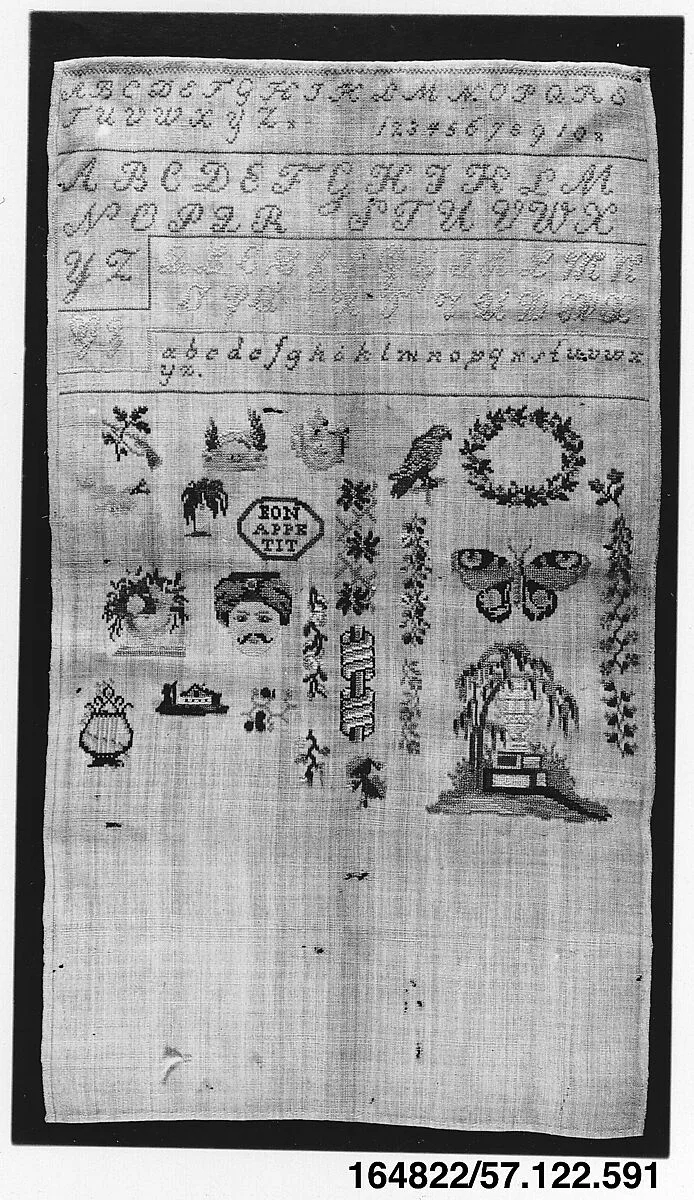 A B C D E F G H I K L M N O P Q R S
T U V W X Y Z 1 2 3 4 5 6 7 8 9 10
A B C D E F G H I K L M
N O P Q R S T U V W X
Y Z
L M N
a b c d e f g h i k l m n o p q r s t u v w x
y z.
BON
APPE
TIT
164822/57.122.591